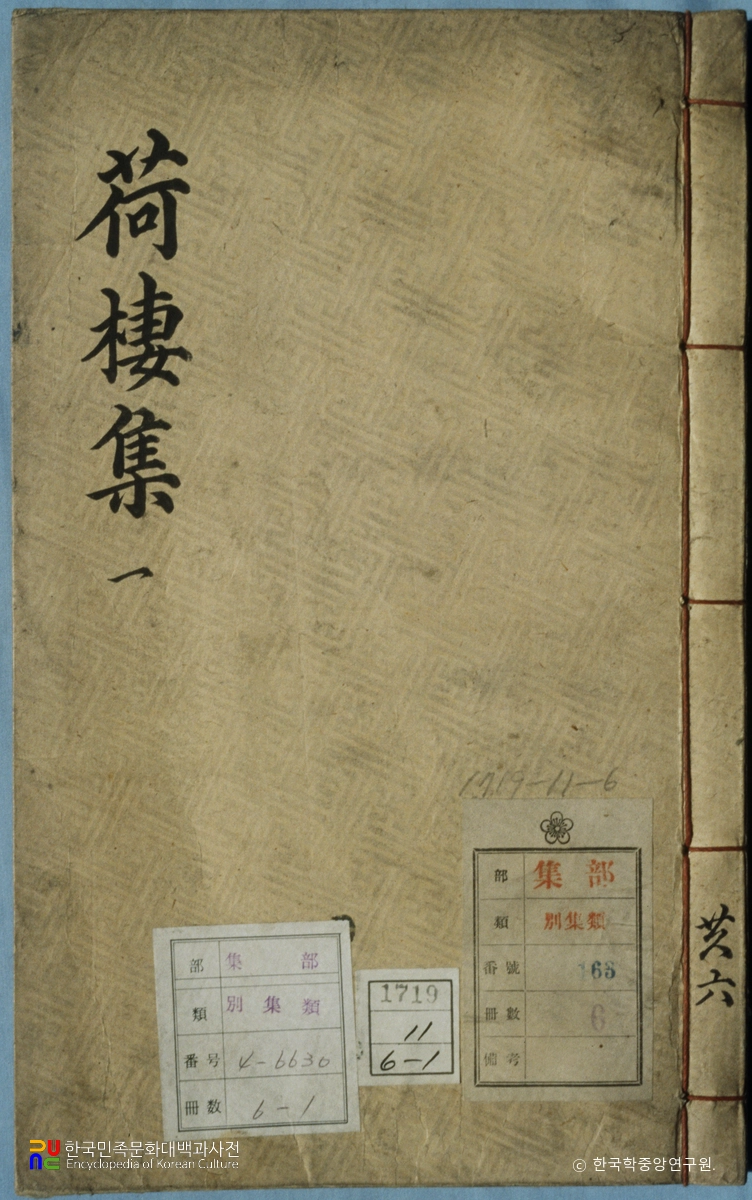 荷棲集
一
共六
1719-11-6
部 集部
類 別集類
番號 166
冊數 6
備考
部 集部
類 別集類
番号 4-6630
冊数 6-1
1719
11
6-1
한국민족문화대백과사전
Encyclopedia of Korean Culture
© 한국학중앙연구원.